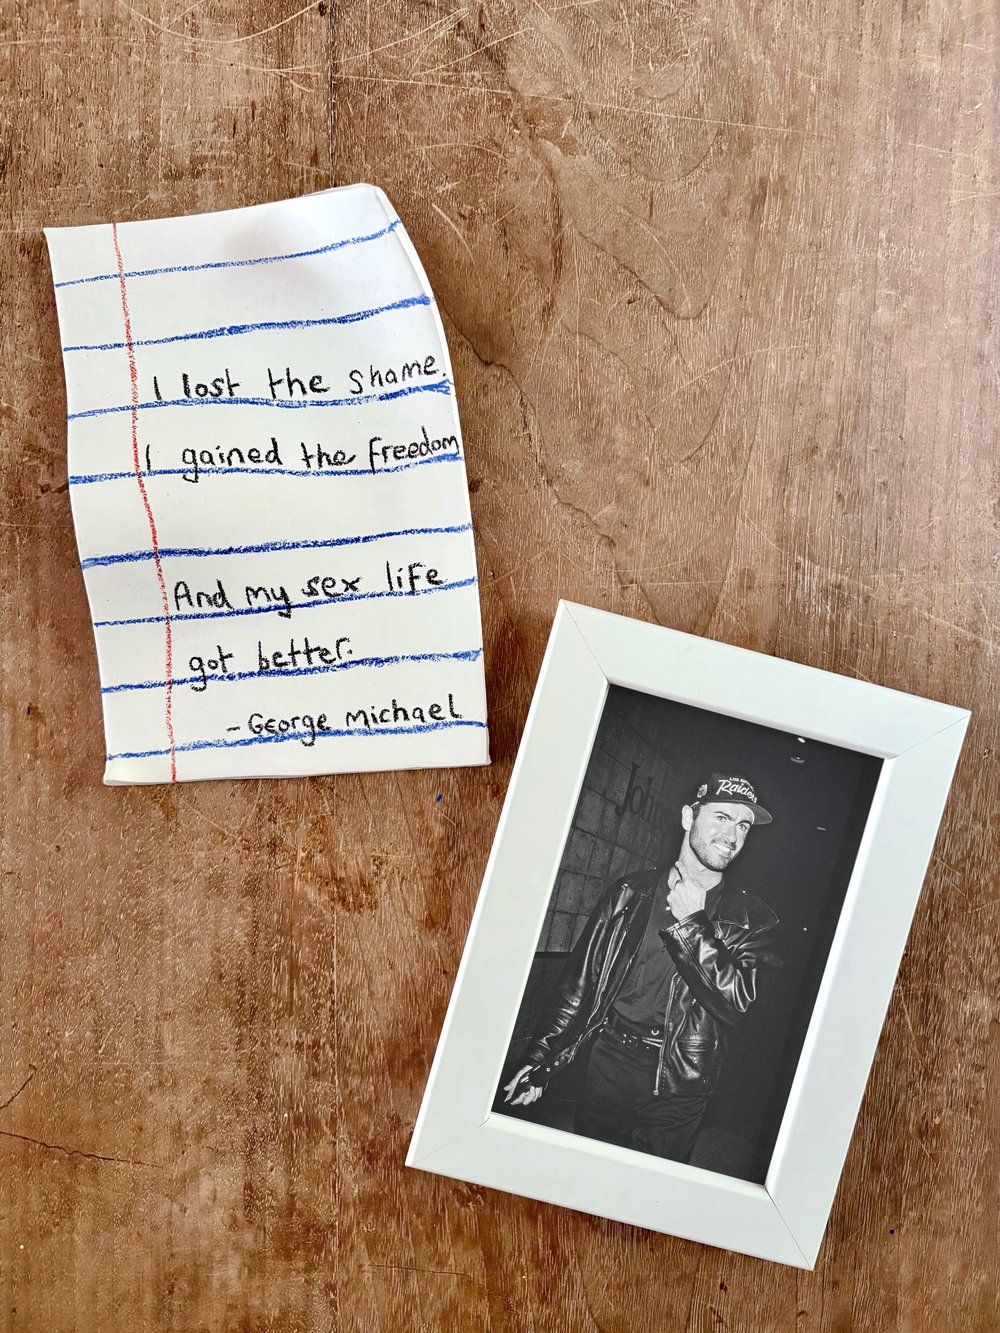 I lost the shame.
I gained the freedom
And my sex life
got better.
- George Michael
John
Raiders